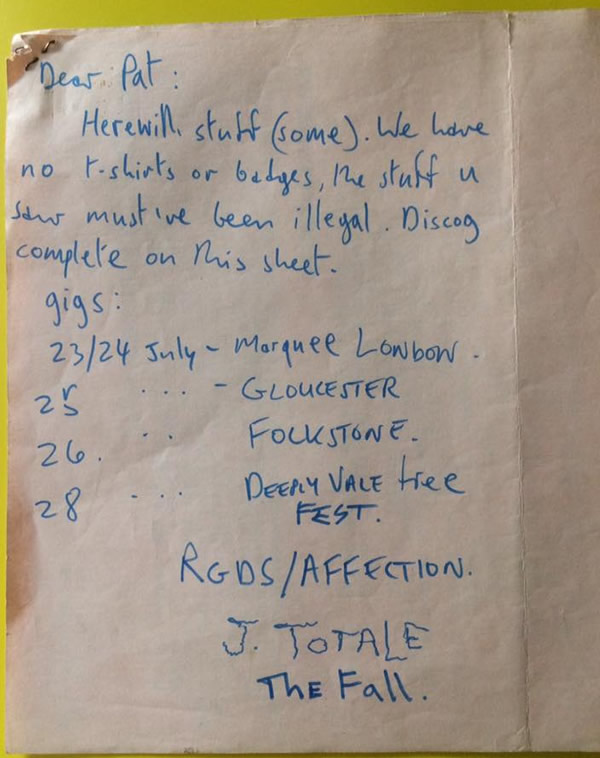 Dear Pat:
Herewith stuff (some). We have
no t-shirts or badges, the stuff u
saw must've been illegal. Discog
complete on this sheet.
gigs:
23/24 July - Marquee LONDON.
25 ... - GLOUCESTER
26. .. FOLKSTONE.
28 ... DEEPLY VALE free
FEST.
RGDS/AFFECTION.
J. TOTALE
THE Fall.